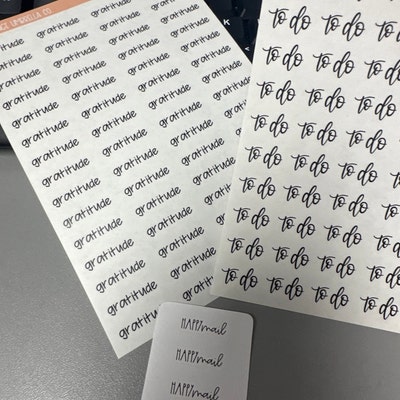 UMBRELLA CO
gratitude gratitude gratitude gratitude
gratitude gratitude gratitude gratitude
gratitude gratitude gratitude gratitude
gratitude gratitude gratitude gratitude
gratitude gratitude gratitude gratitude
gratitude gratitude gratitude gratitude
gratitude gratitude gratitude gratitude
gratitude gratitude gratitude
gratitude gratitude gratitude
gratitude gratitude gratitude
gratitude gratitude
gratitude gratitude
gratitude
to do to do to do
to do to do to do
to do to do to do
to do to do to do
to do to do to do
to do to do to do to do
to do to do to do to do
to do to do to do to do
to do to do to do to do
to do to do to do to do
HAPPYmail
HAPPYmail
HAPPYmail